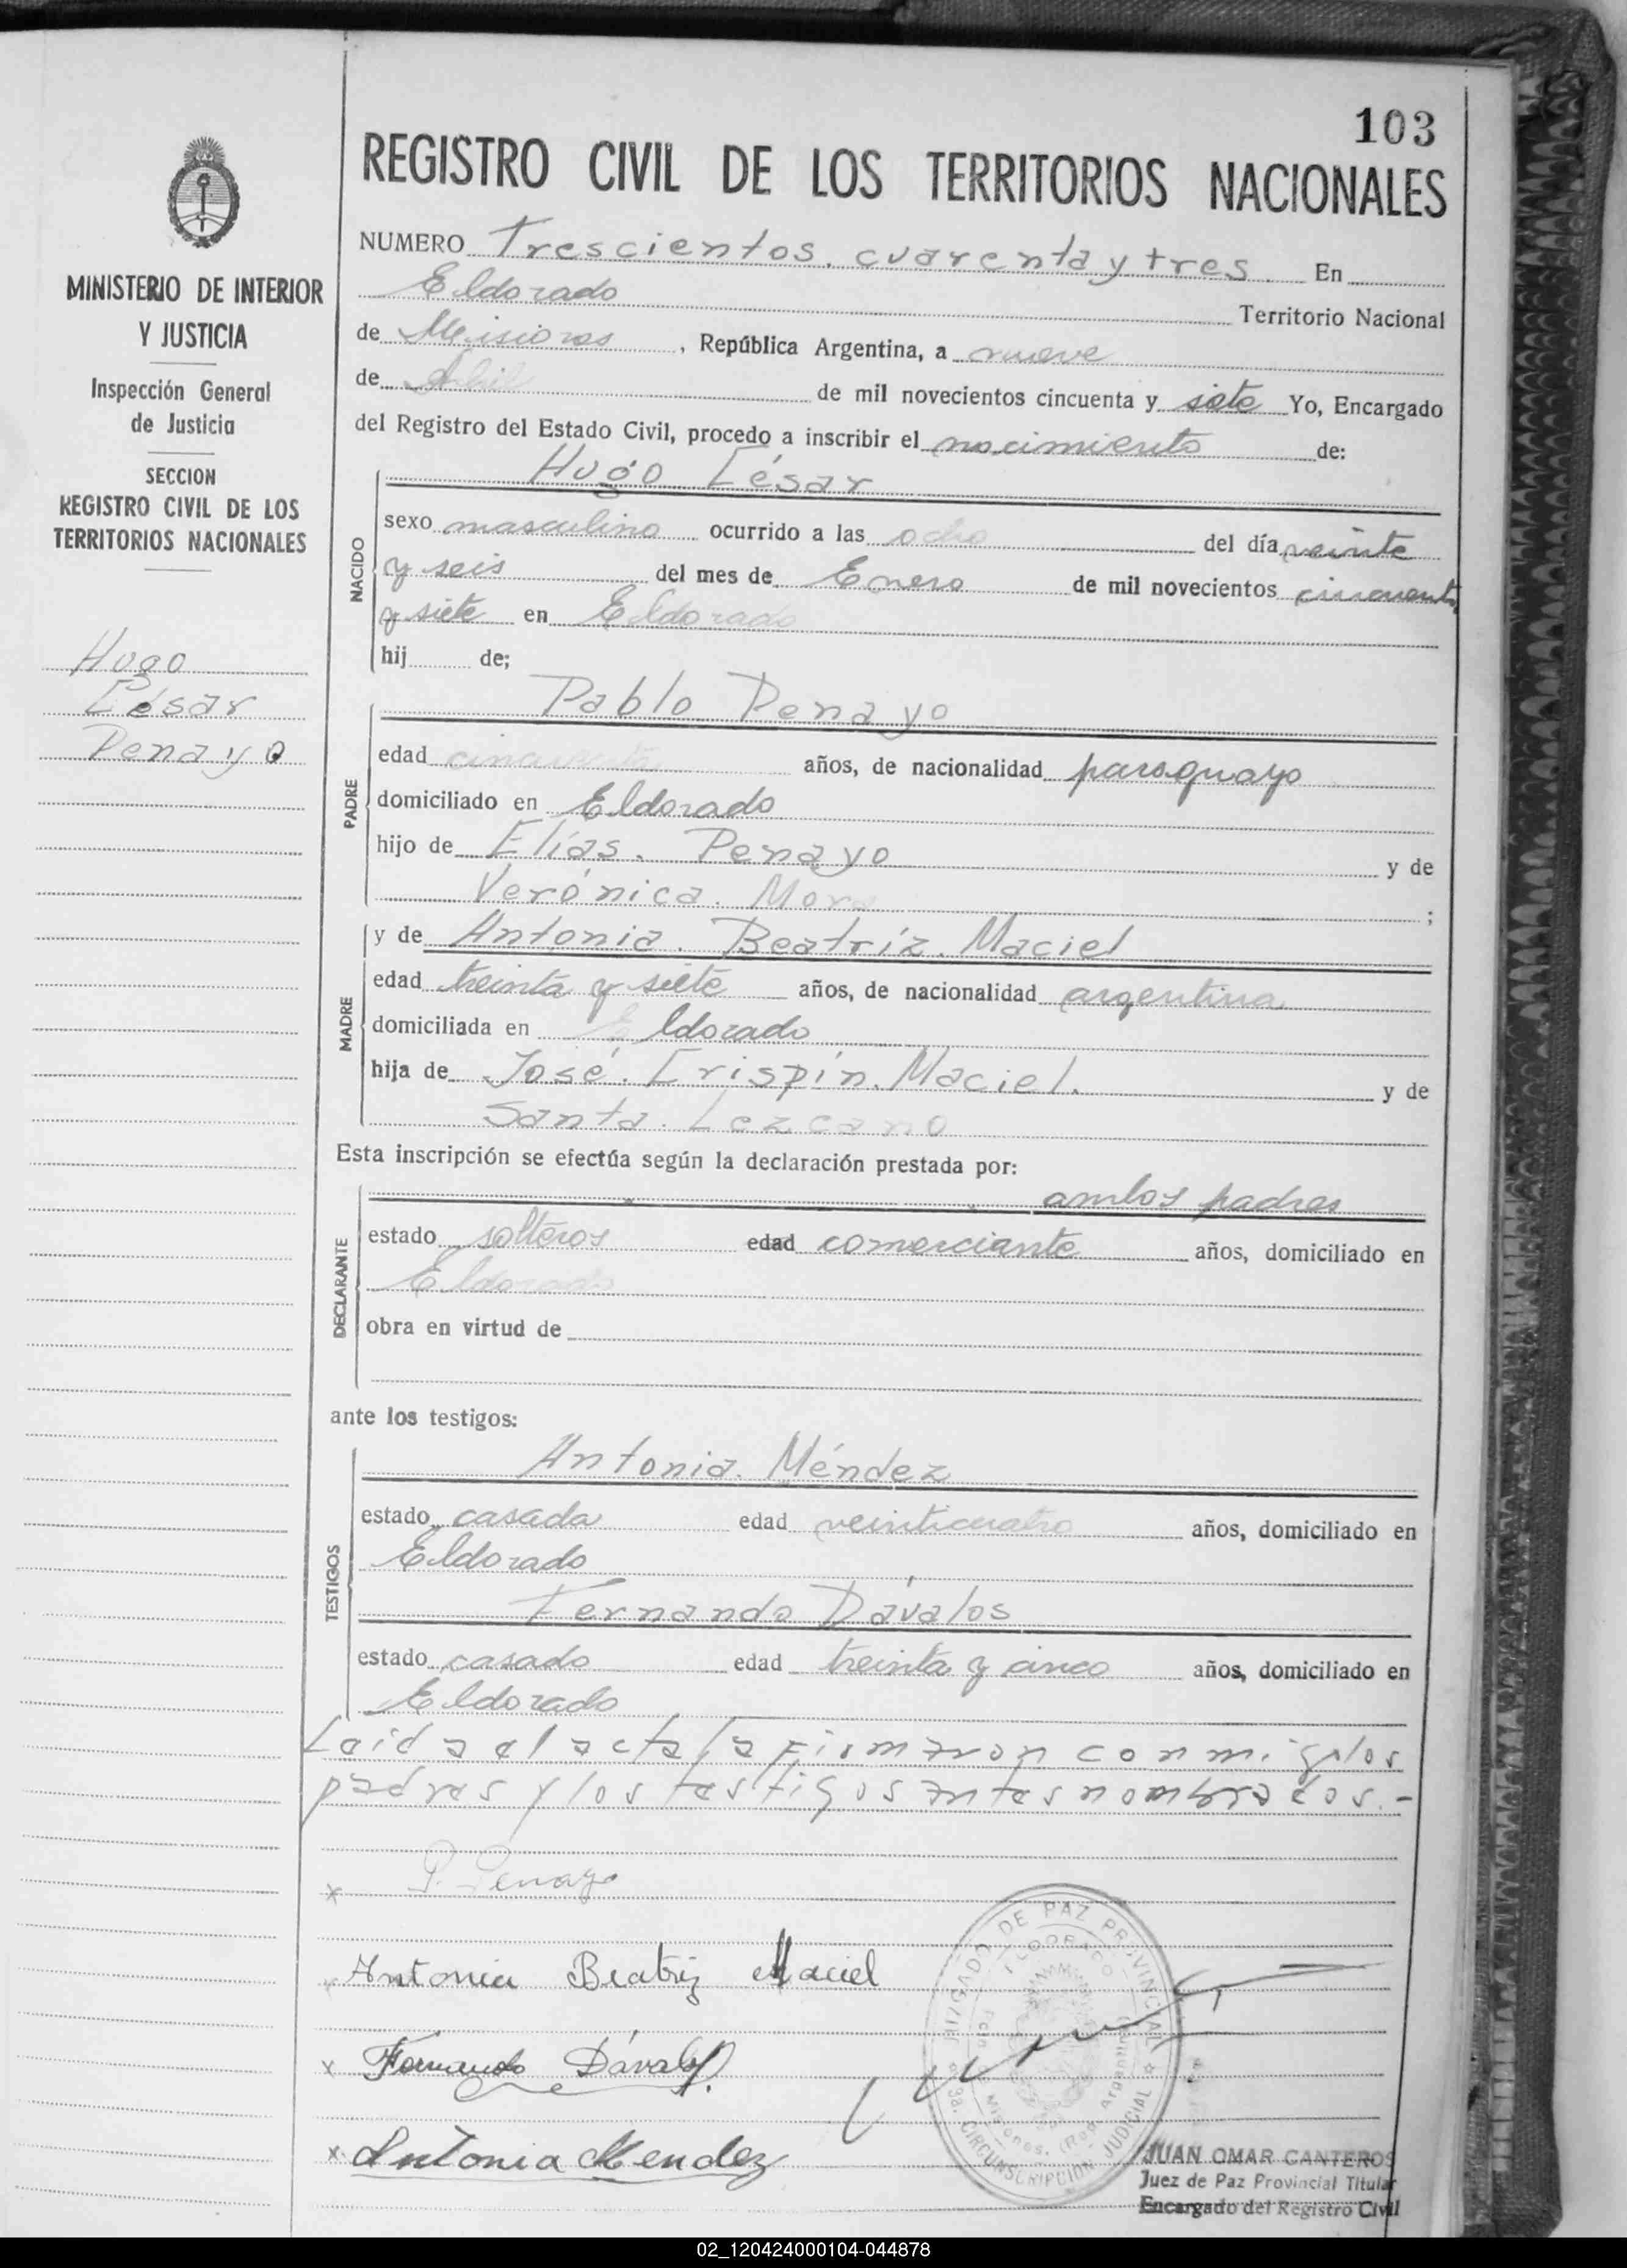 103
REGISTRO CIVIL DE LOS TERRITORIOS NACIONALES
MINISTERIO DE INTERIOR
Y JUSTICIA
Inspección General
de Justicia
SECCION
REGISTRO CIVIL DE LOS
TERRITORIOS NACIONALES
Hugo
César
Penayo
NUMERO Trescientos cuarenta y tres En
Eldorado Territorio Nacional
de Misiones, República Argentina, a nueve
de Abril de mil novecientos cincuenta y siete Yo, Encargado
del Registro del Estado Civil, procedo a inscribir el nacimiento de:
NACIDO
Hugo César
sexo masculino ocurrido a las ocho del día veinte
y seis del mes de Enero de mil novecientos cincuenta
y siete en Eldorado
hij de;
PADRE
Pablo Penayo
edad cincuenta años, de nacionalidad paraguayo
domiciliado en Eldorado
hijo de Elías. Penayo y de
Verónica. Mora ;
MADRE
y de Antonia. Beatríz. Maciel
edad treinta y siete años, de nacionalidad argentina
domiciliada en Eldorado
hija de José. Crispín. Maciel. y de
Santa. Lezcano
Esta inscripción se efectúa según la declaración prestada por:
DECLARANTE
ambos padres
estado solteros edad comerciante años, domiciliado en
Eldorado
obra en virtud de
ante los testigos:
TESTIGOS
Antonia. Méndez
estado casada edad veinticuatro años, domiciliado en
Eldorado
Fernando Dávalos
estado casado edad treinta y cinco años, domiciliado en
Eldorado
Leida el acta la firmaron conmigo los
padres y los testigos antes nombrados.-
x P. Penayo
x Antonia Beatriz Maciel
x Fernando Dávalos
x Antonia Mendez
JUZGADO DE PAZ PROVINCIAL
ELDORADO
Misiones. (Rep. Argentina)
3a. CIRCUNSCRIPCION JUDICIAL
JUAN OMAR CANTEROS
Juez de Paz Provincial Titular
Encargado del Registro Civil
02_120424000104-044878